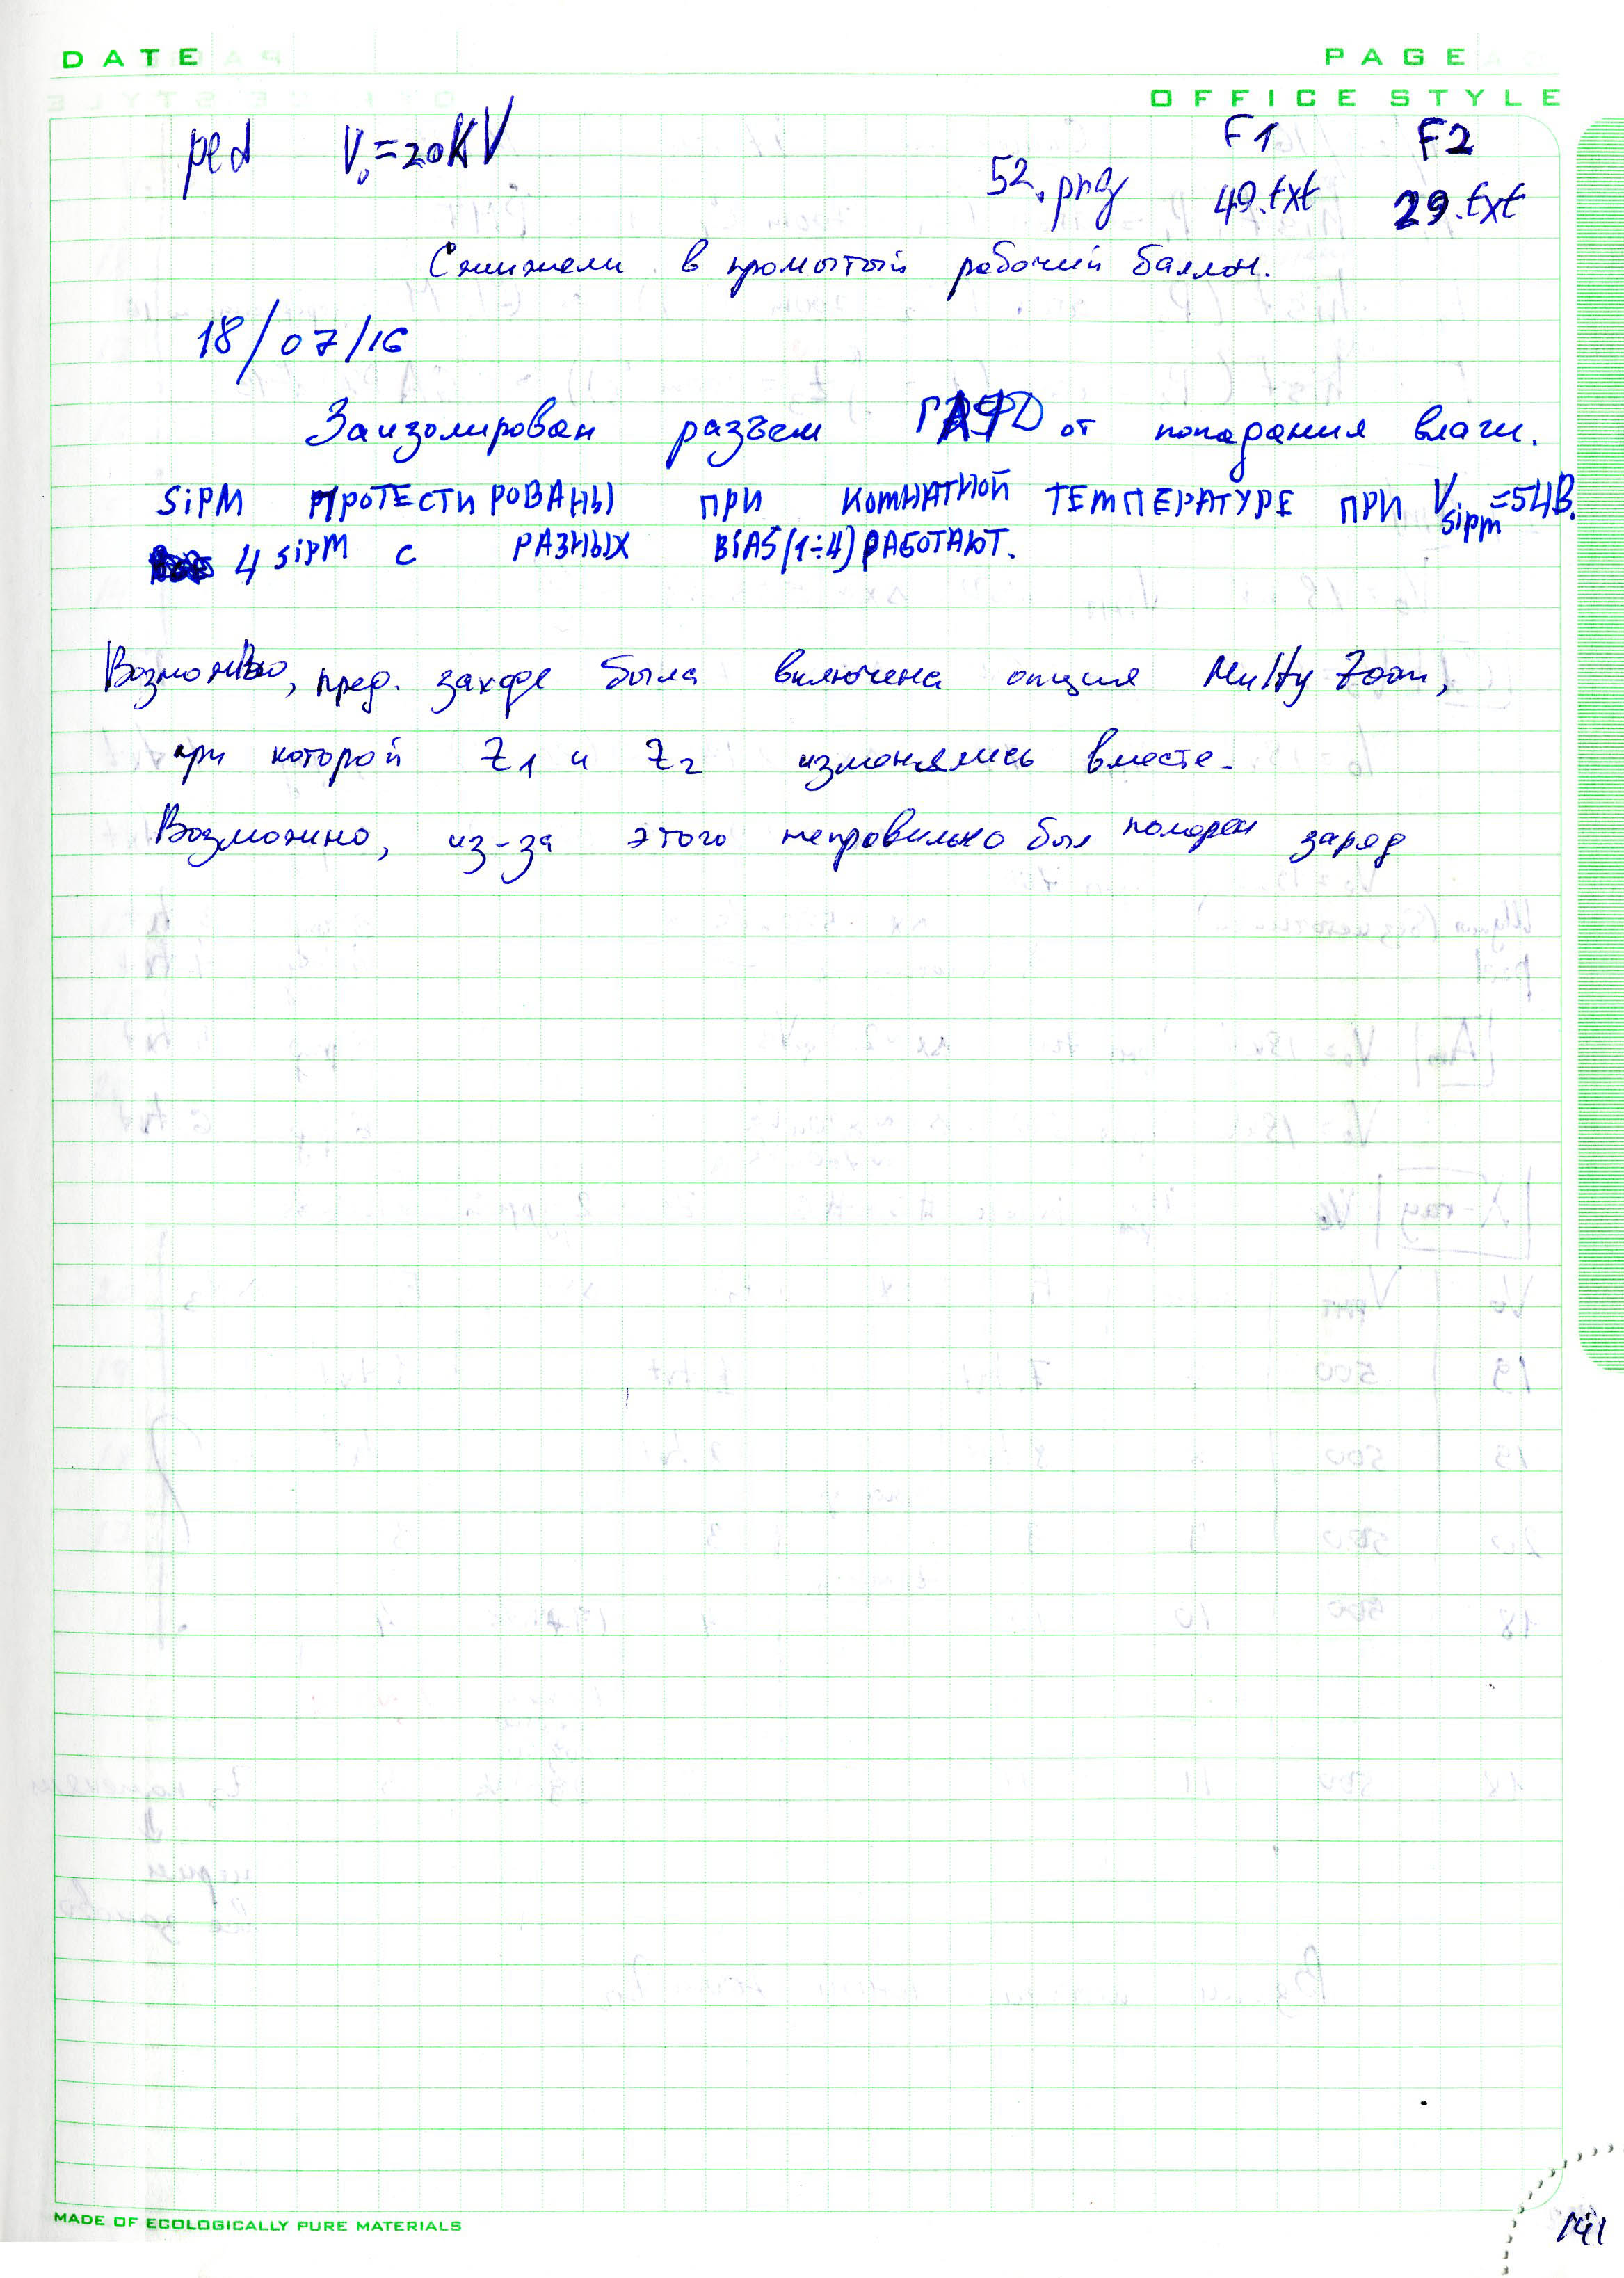 DATE PAGE
OFFICE STYLE
F1 F2
ped V₀=20KV 52.png 49.txt 29.txt
Сжижали в промытый рабочий баллон.
18/07/16
Заизолирован разъем от попадания влаги.
SiPM ПРОТЕСТИРОВАНЫ ПРИ КОМНАТНОЙ ТЕМПЕРАТУРЕ ПРИ Vsipm=54В.
4 SiPM С РАЗНЫХ BIAS (1÷4) РАБОТАЮТ.
Возможно, пред. заходе была включена опция Multy Zoom,
при которой Z1 и Z2 изменялись вместе.
Возможно, из-за этого неправильно был померен заряд
MADE OF ECOLOGICALLY PURE MATERIALS
141